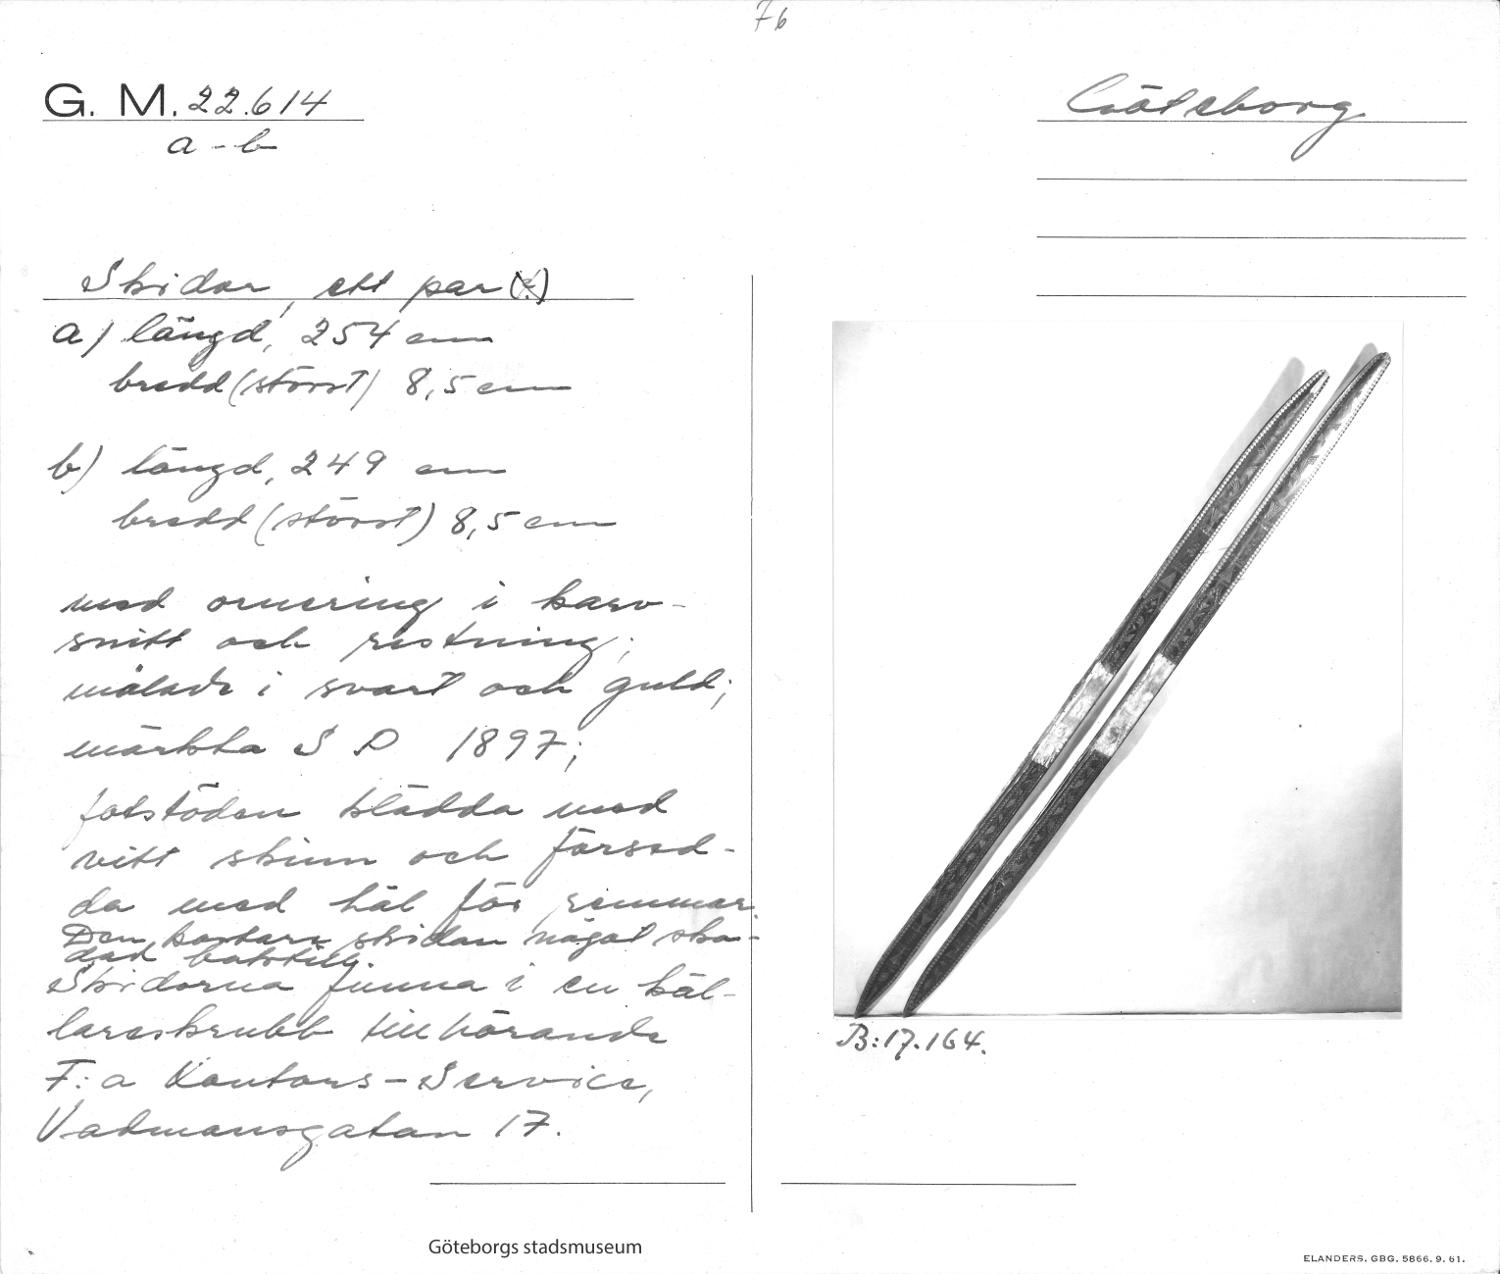 76
G. M. 22.614
a-b
Göteborg
Skidor, ett par (2)
a) längd, 254 cm
bredd (störst) 8,5 cm
b) längd, 249 cm
bredd (störst) 8,5 cm
med ornering i karv-
snitt och ristning;
målade i svart och guld;
märkta S D 1897;
fotstöden klädda med
vitt skinn och försed-
da med hål för remmar.
Den kortare skidan något ska-
dad baktill.
Skidorna funna i en käl-
lareskrubb tillhörande
F:a Kontors-Service,
Vadmansgatan 17.
B:17.164.
Göteborgs stadsmuseum
ELANDERS. GBG. 5866. 9. 61.